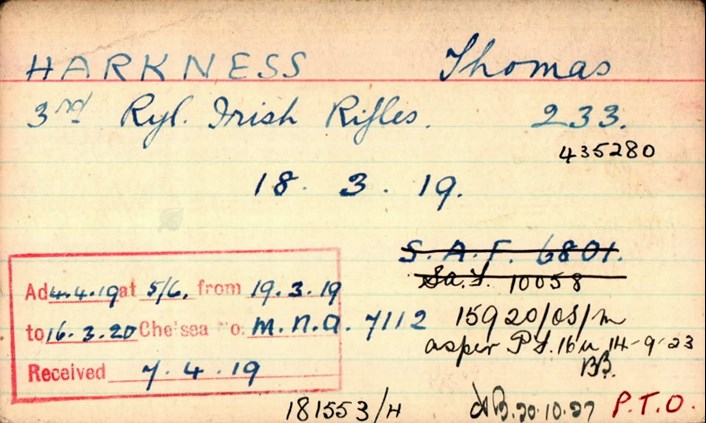 HARKNESS Thomas
3rd Ryl. Irish Rifles. 233.
435280
18. 3. 19.
S. A. F. 6801.
Sa. F. 10058
Ad 4.4.19 at 5/6, from 19.3.19
to 16.3.20 Chelsea No. M.N.A. 7112
15920/OS/M
as per P.S. 16 14-9-23
BB.
Received 7.4.19
181553/H 20.10.27 P.T.O.